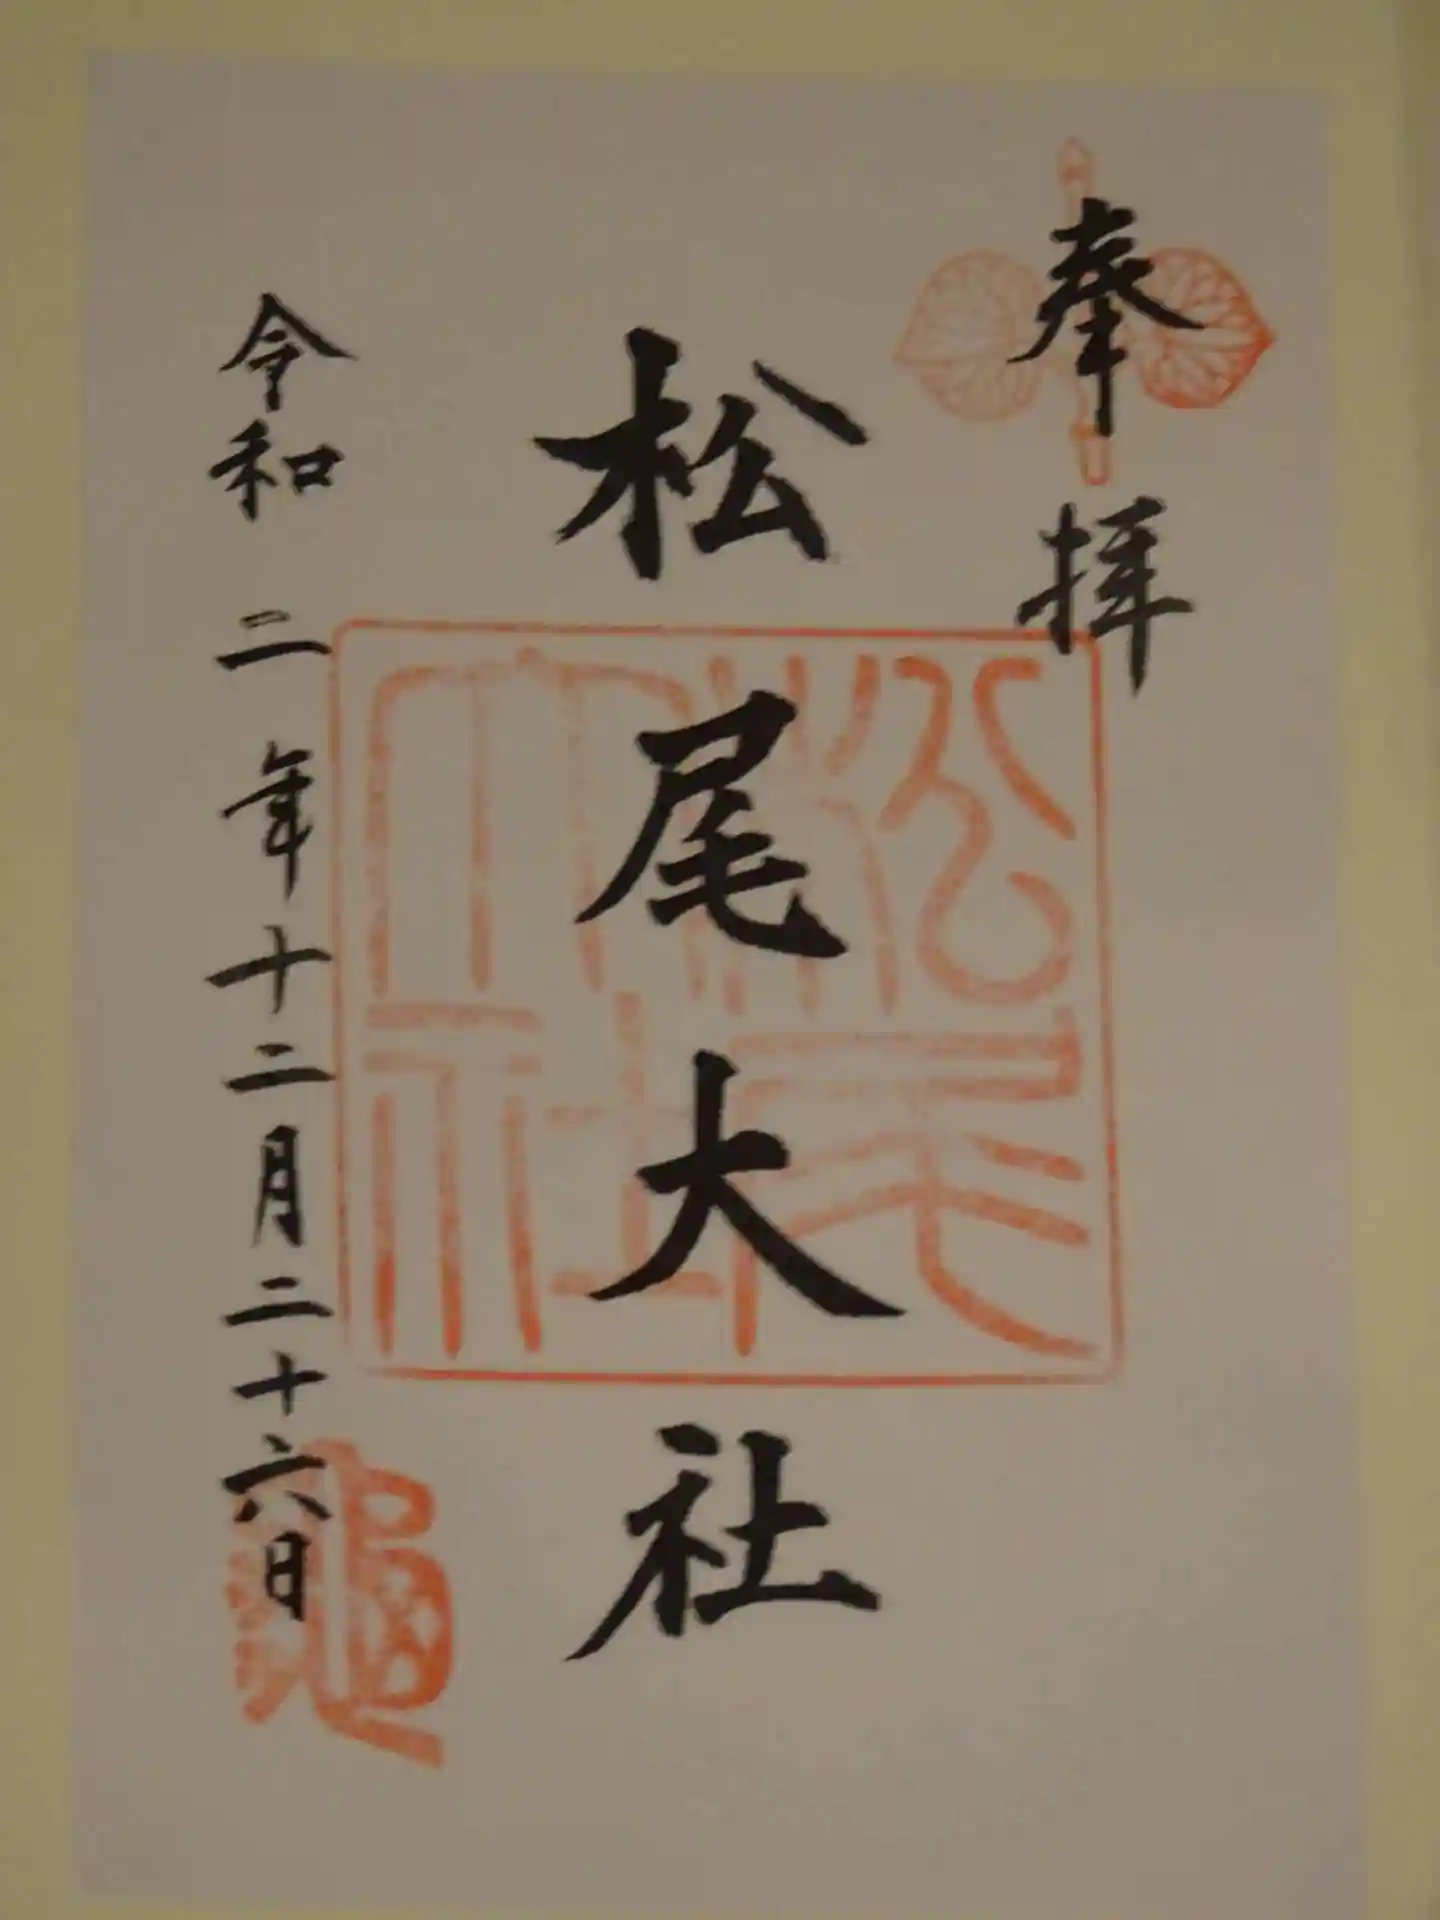 奉拝
松尾大社
令和二年十二月二十六日
松尾大社
亀